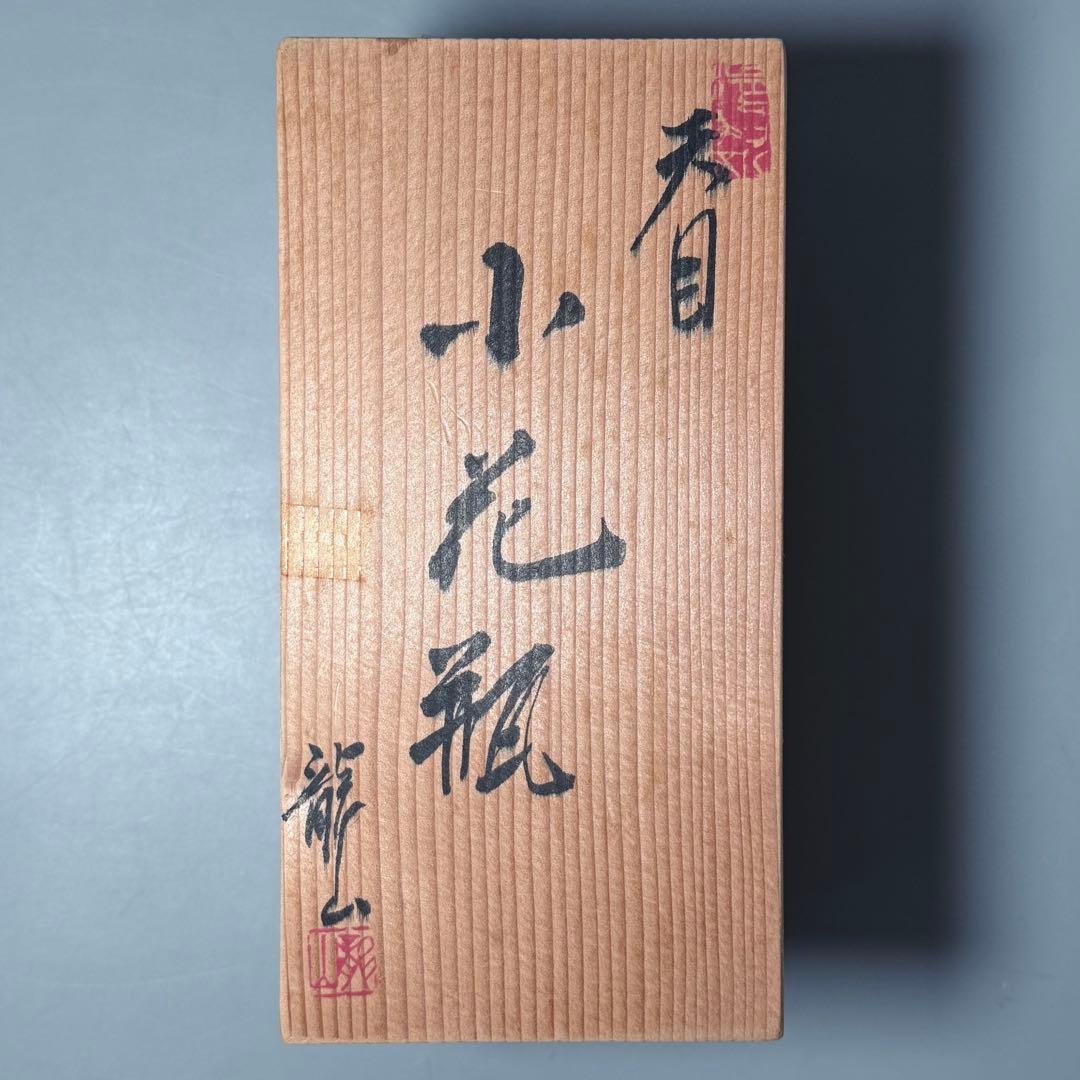 天目
小花瓶
龍山